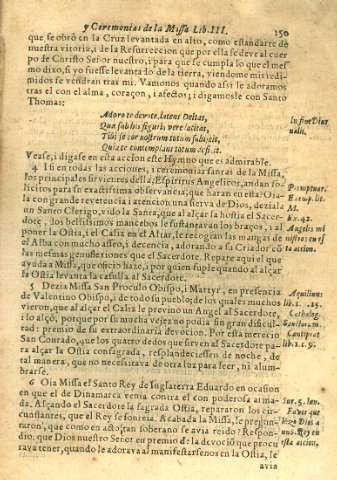 y Ceremonias de la Missa Lib. III. 150
que se obrò en la Cruz levantada en alto, como estandarte de
nuestra vitoria, i de la Resurreccion que por ella se devè al cuer
po de Christo Señor nuestro, i para que se cumpla lo que el mes
mo dixo, si yo fuesse levantado de la tierra, viendome mis redi-
midos vendràn tras mi. Vamonos quando assi le adoramos
tras el con el alma, coraçon, i afectos; i digamosle con Santo
Thomas:
Adoro te devote, latens Deitas,
Quæ sub his figuris vere latitas,
Tibi se cor nostrum totum subijcit,
Quia te contemplans totum deficit.
In fine Diur
nalis.
Vease, i digase en esta accion este Hymno que es admirable.
4 Iсomo en todas las acciones, i ceremonias santas de la Missa,
los principales sirvientes della Espiritus Angelicos, andan so-
lícitos para su exactissima observancia; que haran en esta? Oia
la con grande reverencia i atencion una sierva de Dios, deziala
un Santo Clerigo, vido la Santa, que al alçar la hostia el Sacer-
dote, dos bellissimos mancebos le sustentavan los braços, i al
poner la Ostia, i el Caliz en el Altar, le recogian las mangas de
el Alba con mucho asseo, i decencia, adorando a su Criador cō
las mesmas genuflexiones que el Sacerdote. Repare aqui el que
ayuda a Missa, que oficio haze, i por quien suple quando al alçar
la Ostia levanta la casulla al Sacerdote.
Cantiprat.
lib. 2.
Angeles mi
nistros en es
ta accion.
5 Dezia Missa San Proculo Obispo, i Martyr, en presencia
de Valentino Obispo, i de todo su pueblo; de los quales muchos
vieron, que al alçar el Caliz le previno un Angel al Sacerdote,
i lo alçò, porque por su mucha vejez no podia sin gran dificul-
tad: premio de su extraordinaria devocion. Por esta mereciò
San Conrado, que los quatro dedos que serven al Sacerdote pa-
ra alçar la Ostia consagrada, resplandeciessen de noche, de
tal manera, que no necessitava de otra luz para leer, ni alum-
brarse.
Aquilinus
Catholog.
Sanctorum.
Cantiprat
6 Oia Missa el Santo Rey de Inglaterra Eduardo en ocasion
en que el de Dinamarca venia contra el con poderosa arma-
da. Alçando el Sacerdote la sagrada Ostia, repararon los cir-
cunstantes, que el Rey se sonreia. Acabada la Missa, le pregun-
taron, que como en acto, tan soberano se avia reido? Respon-
diò, que Dios nuestro Señor en premio de la devociō que procu
rava tener, quando le adorava al manifestarse nos en la Ostia, le
Favor que
hizo Dios a
un S. Rey en
esta accion.
avia